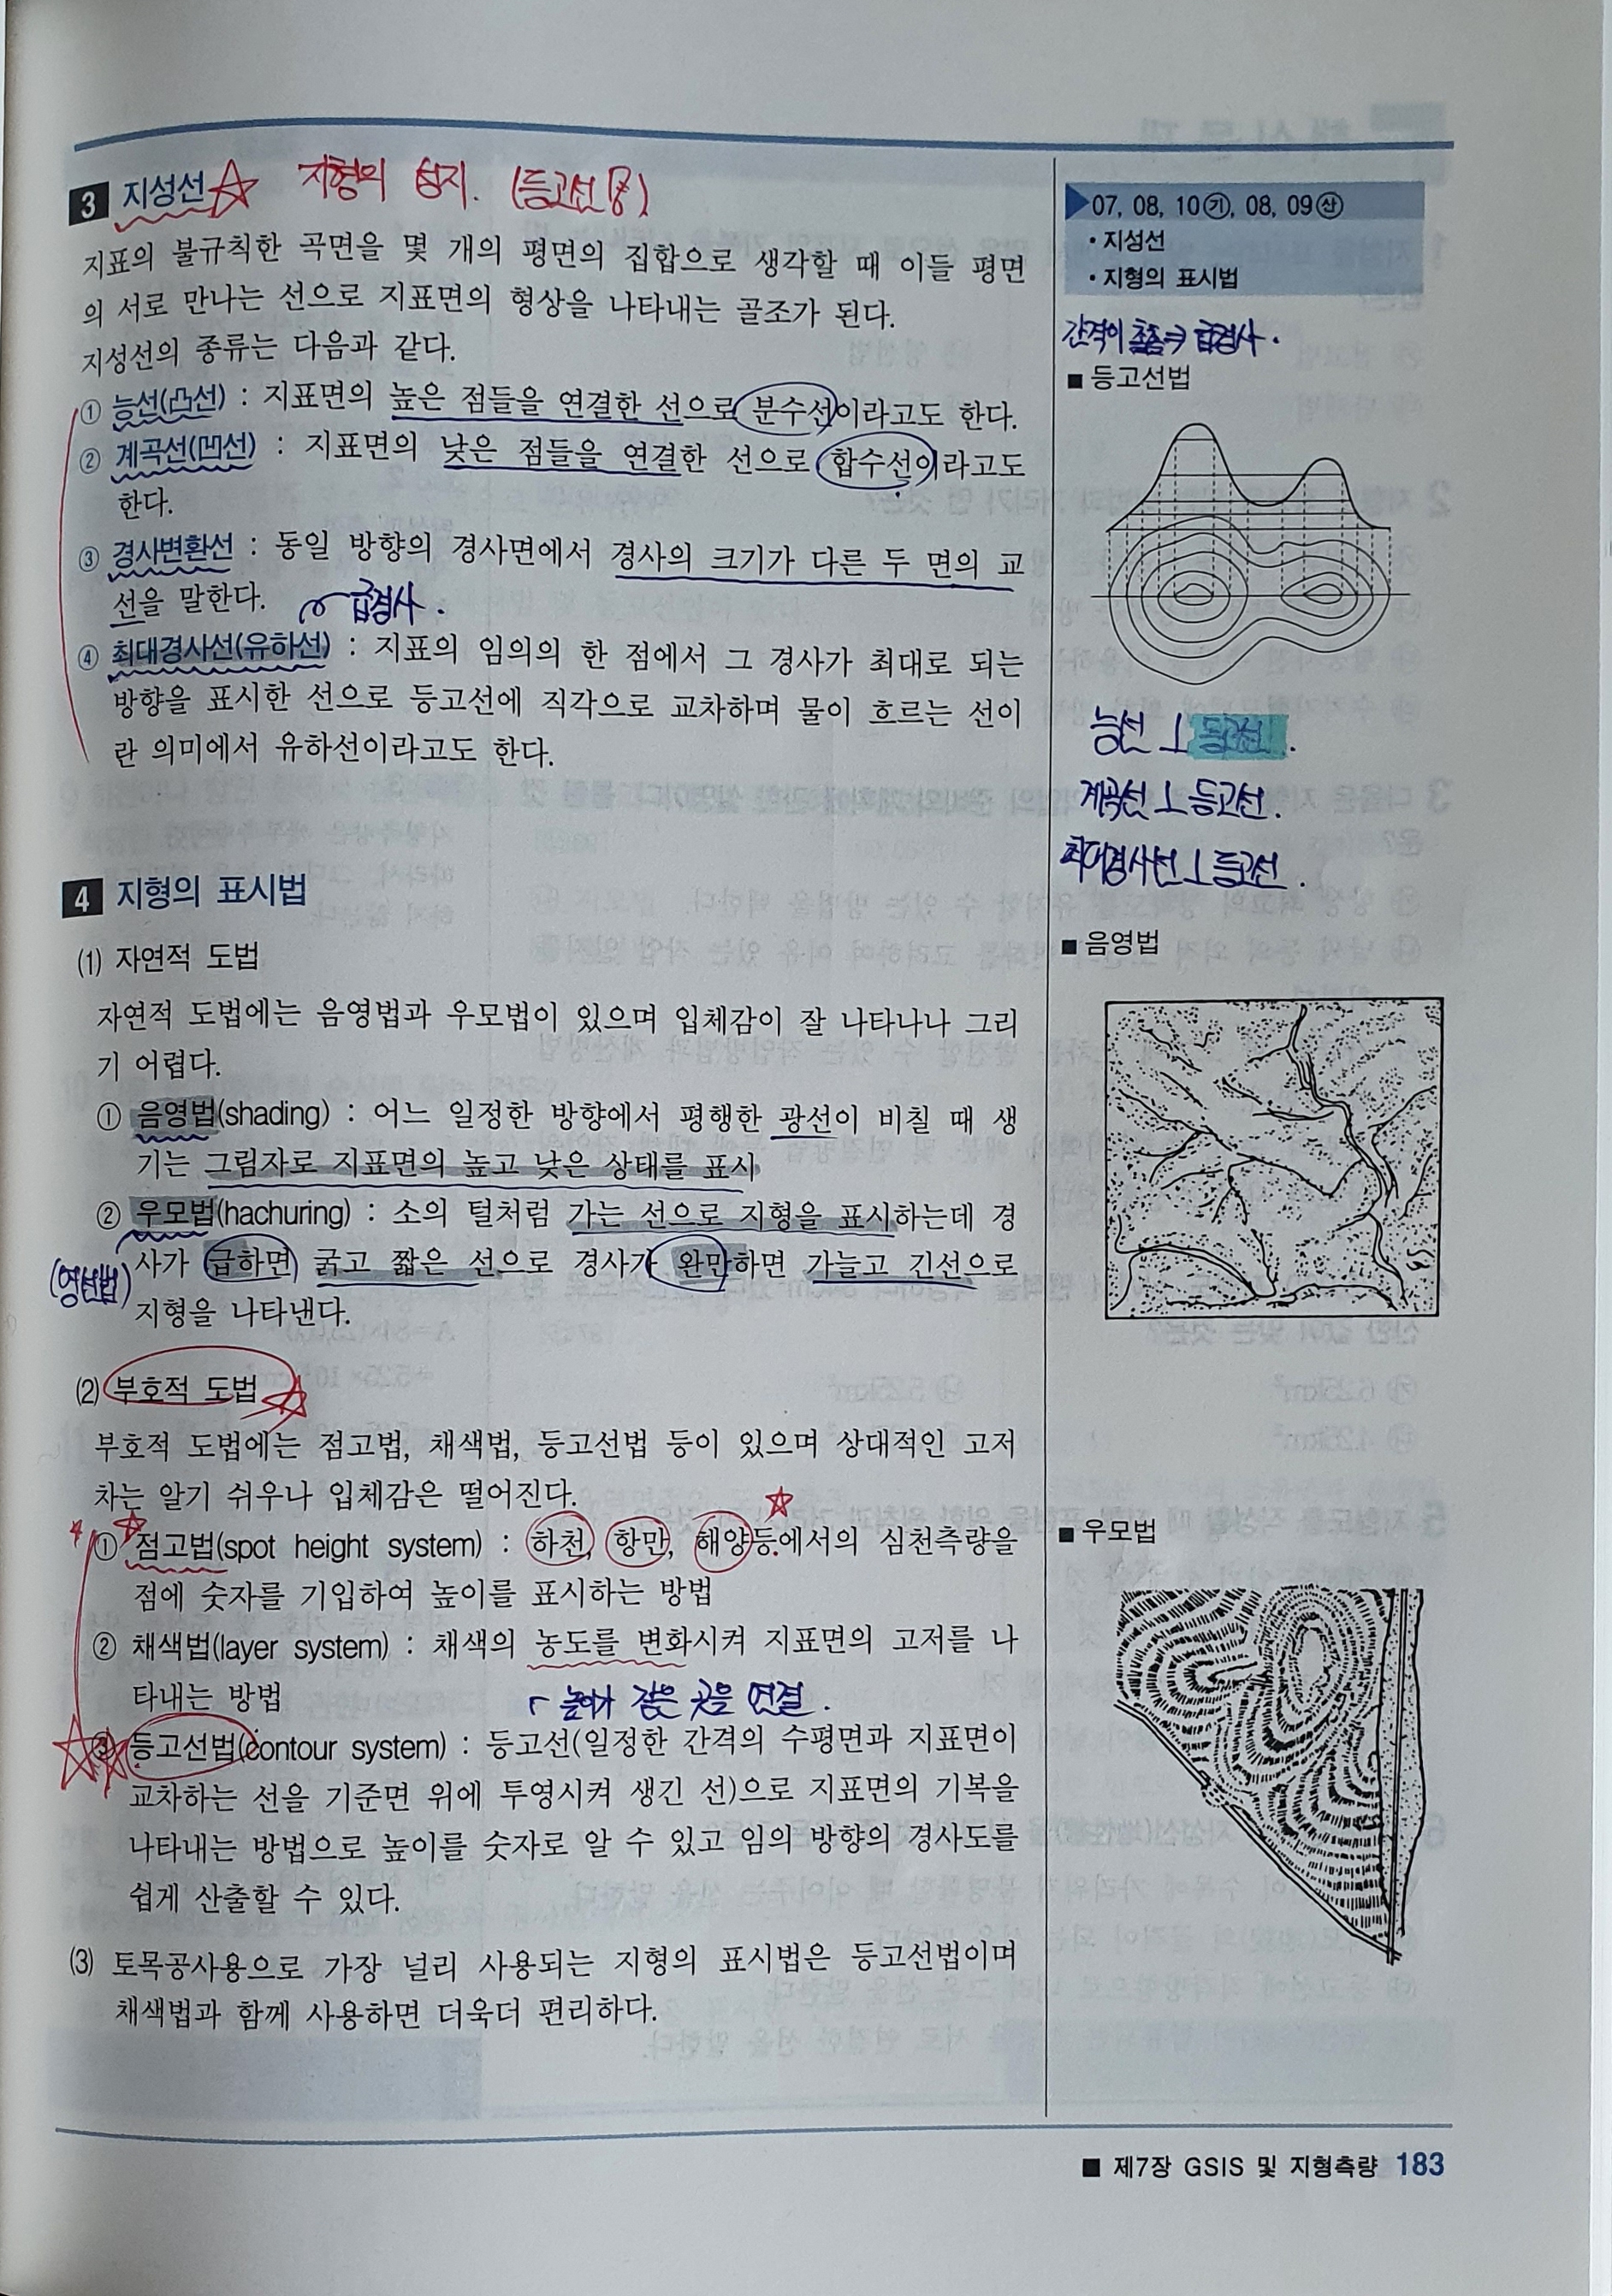 3 지성선 지형의 (등고선
지표의 불규칙한 곡면을 몇 개의 평면의 집합으로 생각할 때 이들 평면
의 서로 만나는 선으로 지표면의 형상을 나타내는 골조가 된다.
지성선의 종류는 다음과 같다.
① 능선(凸선) : 지표면의 높은 점들을 연결한 선으로 분수선이라고도 한다.
② 계곡선(凹선) : 지표면의 낮은 점들을 연결한 선으로 합수선이라고도
한다.
③ 경사변환선 : 동일 방향의 경사면에서 경사의 크기가 다른 두 면의 교
선을 말한다. 급경사.
④ 최대경사선(유하선) : 지표의 임의의 한 점에서 그 경사가 최대로 되는
방향을 표시한 선으로 등고선에 직각으로 교차하며 물이 흐르는 선이
란 의미에서 유하선이라고도 한다.
4 지형의 표시법
(1) 자연적 도법
자연적 도법에는 음영법과 우모법이 있으며 입체감이 잘 나타나나 그리
기 어렵다.
① 음영법(shading) : 어느 일정한 방향에서 평행한 광선이 비칠 때 생
기는 그림자로 지표면의 높고 낮은 상태를 표시
② 우모법(hachuring) : 소의 털처럼 가는 선으로 지형을 표시하는데 경
(영선법) 사가 급하면 굵고 짧은 선으로 경사가 완만하면 가늘고 긴선으로
지형을 나타낸다.
(2) 부호적 도법
부호적 도법에는 점고법, 채색법, 등고선법 등이 있으며 상대적인 고저
차는 알기 쉬우나 입체감은 떨어진다.
① 점고법(spot height system) : 하천, 항만, 해양등에서의 심천측량을
점에 숫자를 기입하여 높이를 표시하는 방법
② 채색법(layer system) : 채색의 농도를 변화시켜 지표면의 고저를 나
타내는 방법
높이가 같은 곳을 연결.
③ 등고선법(contour system) : 등고선(일정한 간격의 수평면과 지표면이
교차하는 선을 기준면 위에 투영시켜 생긴 선)으로 지표면의 기복을
나타내는 방법으로 높이를 숫자로 알 수 있고 임의 방향의 경사도를
쉽게 산출할 수 있다.
(3) 토목공사용으로 가장 널리 사용되는 지형의 표시법은 등고선법이며
채색법과 함께 사용하면 더욱더 편리하다.
▶07, 08, 10㉮, 08, 09㉯
• 지성선
• 지형의 표시법
간격이 급경사.
■ 등고선법
능선 ⊥ 등고선.
계곡선 ⊥ 등고선.
최대경사선 ⊥ 등고선.
■ 음영법
■ 우모법
■ 제7장 GSIS 및 지형측량 183